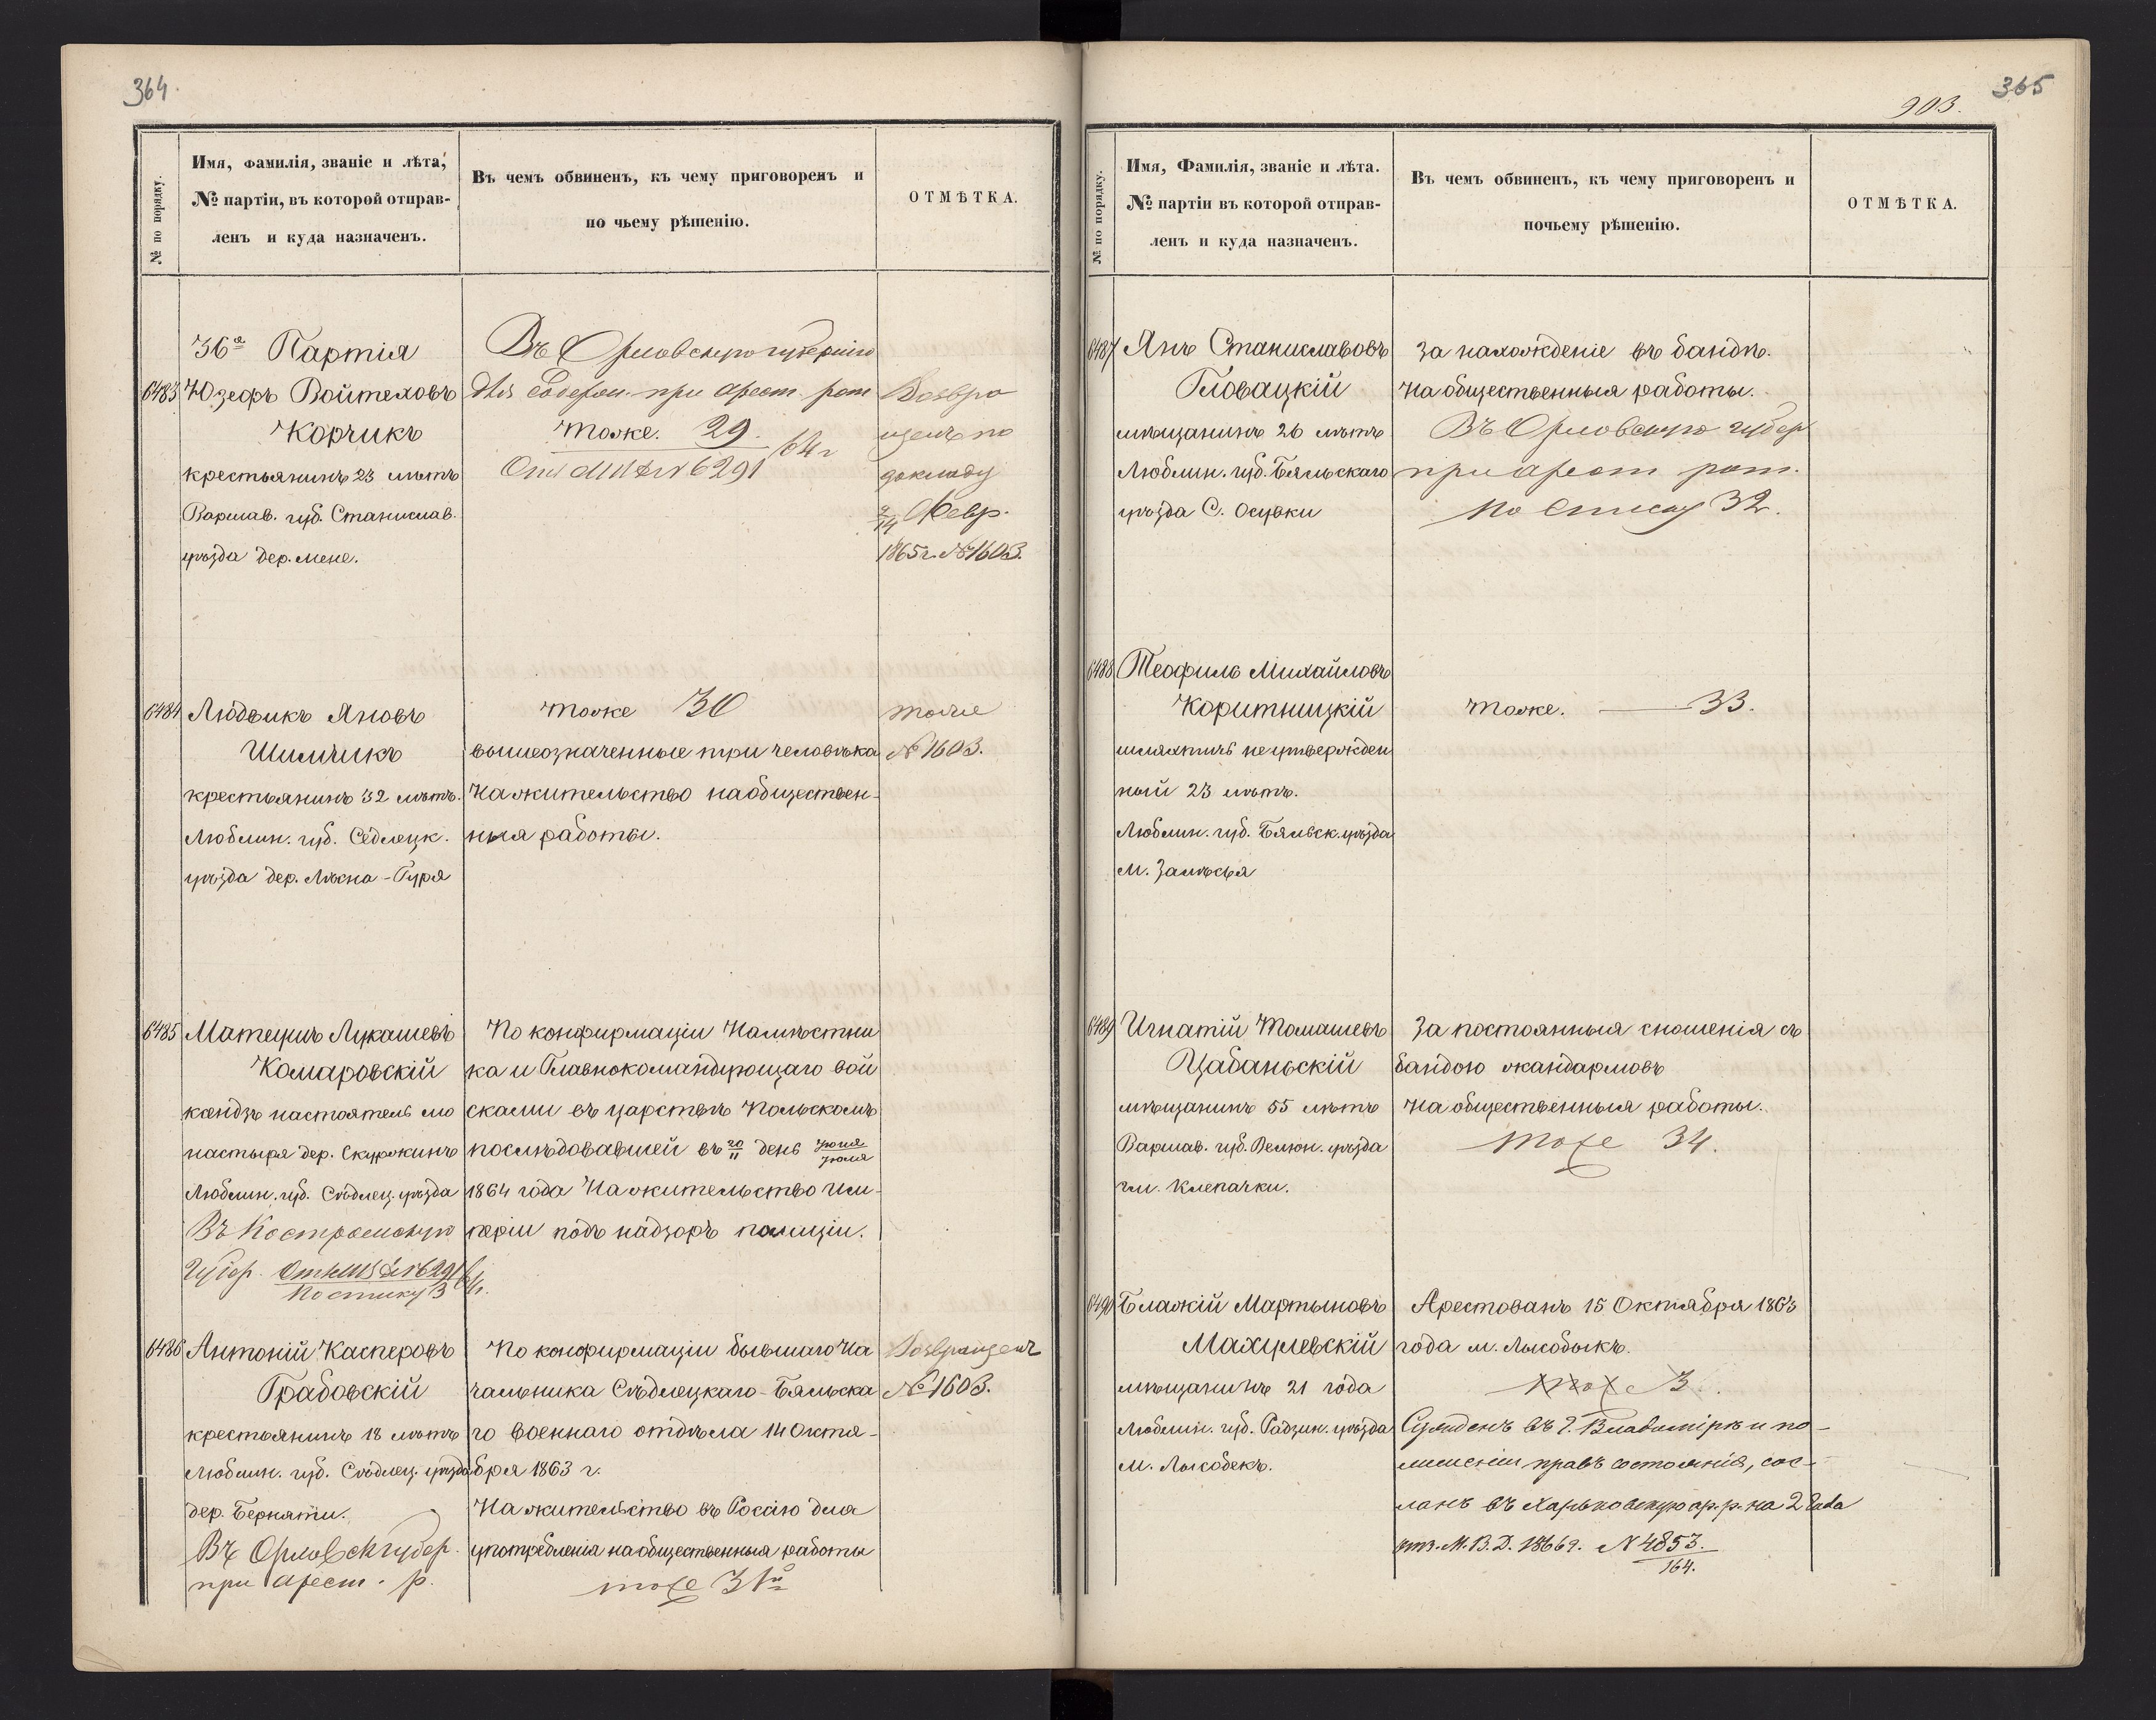 364.
№ по порядку.
Имя, фамилія, званіе и лѣта,
№ партіи, въ которой отправ-
ленъ и куда назначенъ.
Въ чемъ обвиненъ, къ чему приговоренъ и
по чьему рѣшенію.
ОТМѢТКА.
36я Партія
6483 Юзефъ Войтеховъ
Корчикъ
крестьянинъ 23 лѣтъ
Варшав. губ. Станислав.
уѣзда дер. Мене.
Въ Орловскую губернію
для содерж. при арест. рот
тоже. 29.
6291 64 г
Возвра
щенъ по
докладу
2/14 Февр.
1865 г. № 1603.
6484 Людвикъ Яновъ
Шимчикъ
крестьянинъ 32 лѣтъ.
Люблин. губ. Седлецк.
уѣзда дер. Лѣсна-Гуря
тоже 30
вышеозначенные три человѣка
на жительство на обществен-
ныя работы.
тоже
№ 1603.
6485 Матеушъ Лукашевъ
Комаровскій
ксендзъ настоятель мо
настыря дер. Скуржинъ
Люблин. губ. Сѣдлец. уѣзда
Въ Костромскую
губер.
По списку 3
По конфирмаціи Намѣстни
ка и Главнокомандующаго вой
сками въ царствѣ Польскомъ
послѣдовавшей въ день Іюня
Іюля
1864 года На жительство Им-
періи подъ надзоръ полиціи.
6486 Антоній Касперовъ
Грабовскій
крестьянинъ 18 лѣтъ
Люблин. губ. Сѣдлец. уѣзда
дер. Берняти.
Въ Орловск губер.
при арест. р.
По конфирмаціи бывшаго На
чальника Сѣдлецкаго-Бяльска
го военнаго отдѣла 14 Октя-
бря 1863 г.
На жительство въ Россію для
употребленія на общественныя работы
тоже 31й
Возвращенъ
№ 1603.
365
903.
№ по порядку.
Имя, Фамилія, званіе и лѣта.
№ партіи въ которой отправ-
ленъ и куда назначенъ.
Въ чемъ обвиненъ, къ чему приговоренъ и
почьему рѣшенію.
ОТМѢТКА.
6487 Янъ Станиславовъ
Гловацкій
мѣщанинъ 26 лѣтъ
Люблин. губ. Бяльскаго
уѣзда С. Осувки
За нахожденіе въ бандѣ.
На общественныя работы.
Въ Орловскую губер
при арест рот.
По списку 32.
6488 Теофиль Михайловъ
Коритницкій
шляхтичъ неутвержден
ный 23 лѣтъ.
Люблин. губ. Бяльск. уѣзда
м. Залѣсья
тоже. — 33.
6489 Игнатій Томашевъ
Цабаньскій
мѣщанинъ 55 лѣтъ
Варшав. губ. Велюн. уѣзда
гм. Клепачки.
За постоянныя сношенія съ
бандою жандармовъ
На общественныя работы.
тоже 34.
6490 Блажій Мартыновъ
Махулевскій
мѣщанинъ 21 года
Люблин. губ. Радзин. уѣзда
м. Лысобекъ.
Арестованъ 15 Октября 1863
года м. Лысобыкъ.
тоже 3.
Сужденъ въ г. Владимірѣ и по
лишеніи правъ состоянія, сос-
ланъ въ Харьковскую ар. р. на 2 года
отз. М. В. Д. 1866 г. № 4853.
164.